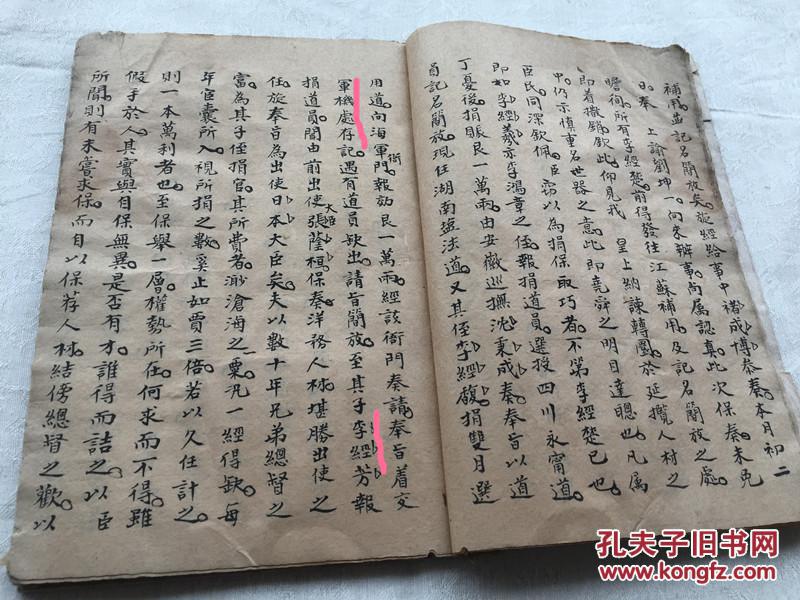 補用並記名簡放矣旋經給事中褚成博叅奏本月初二
日奉 上諭劉坤一向來辦事尚属認真此次保奏未免
瞻徇所有李經楚前得發往江蘇補用及記名簡放之處
即着撤銷欽此仰見我 皇上納諫轉圜於延攬人材之
中仍示慎重名世器之意此即堯舜之明目達聰也凡属
臣民同深欽佩臣竊以為捐保取巧者不第李經楚已也
即如李經羲亦李鴻章之侄報捐道員選授四川永甯道
丁憂後捐賑艮一萬兩由安徽巡撫沈秉成奏奉旨以道
員記名簡放現任湖南塩法道又其侄李經馥捐雙月選
用道向海軍衙門報効艮一萬兩經該衙門奏請奉旨着交
軍機處存記遇有道員缺出請旨簡放至其子李經芳報
捐道員間由前出使大臣張蔭桓保奏洋務人材堪勝出使之
任旋奉旨為出使日本大臣矣夫以數十年兄弟總督之
富為其子侄捐官其所費者渺滄海之一粟況一經得缺每
年宦囊所入視所捐之數奚止如賈三倍若以久任計之
則一本萬利者也至保舉一層權勢所在何求而不得雖
假手於人其實與自保無異是否有才誰得而詰之以臣
所聞則有未嘗求保而自以保荐人材結傍總督之歡以
孔夫子旧书网
www.kongfz.com